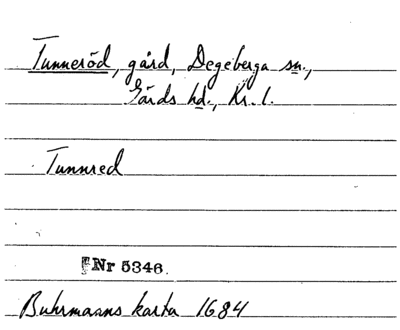 Tunneröd, gård, Degeberga sn.,
Gärds hd., Kr. l.
Tunnred
Nr 5346.
Buhrmanns karta 1684